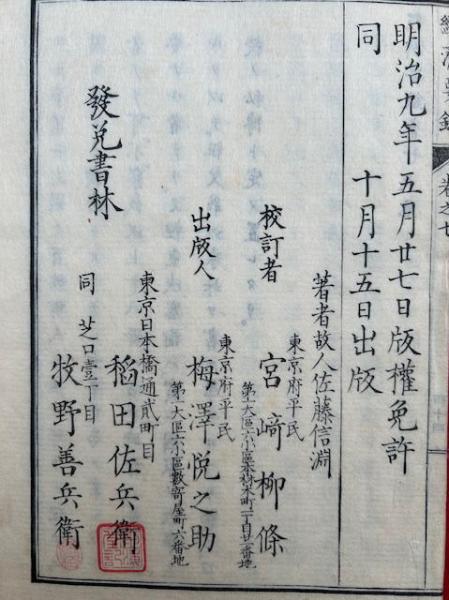 經濟要錄
卷之七
明治九年五月廿七日版權免許
同 十月十五日出版
著者故人佐藤信淵
東京府平民
校訂者 宮﨑柳條
第一大區六小區本材木町一丁目廿一番地
東京府平民
出版人 梅澤悅之助
第一大區六小區數寄屋町六番地
發兌書林
東京日本橋通貳町目
稻田佐兵衛
同 芝口壹丁目
牧野善兵衛